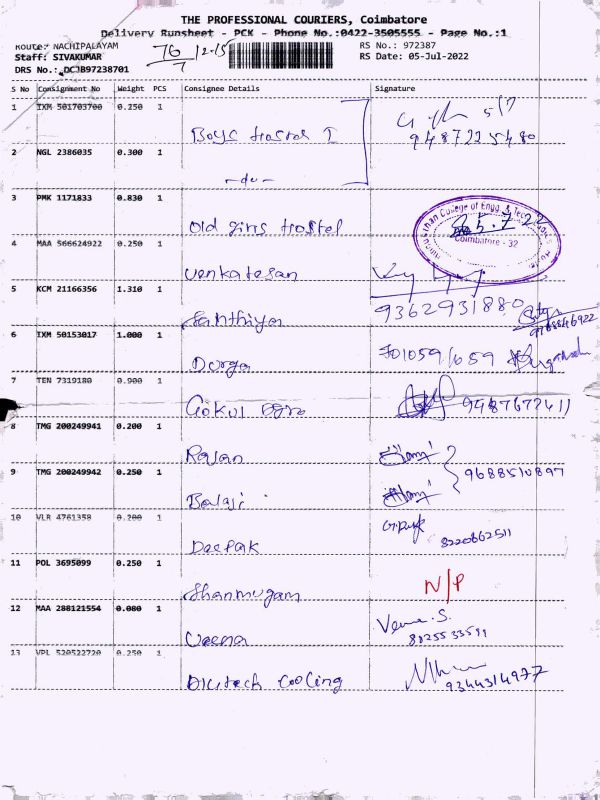 THE PROFESSIONAL COURIERS, Coimbatore
Delivery Runsheet - PCK - Phone No.:0422-3505555 - Page No.:1
Route: NACHIPALAYAM 76/7 12-15 RS No.: 972387
Staff: SIVAKUMAR RS Date: 05-Jul-2022
DRS No.: DCJB97238701
S No Consignment No Weight PCS Consignee Details Signature
1 IXM 501703700 0.250 1 Boys Hostel I 5/7
9487225480
2 NGL 2386035 0.300 1 -do-
3 PMK 1171833 0.830 1 Old Girls Hostel
College of Engg. & Tech
Coimbatore - 32
4 MAA 566624922 0.250 1 Venkatesan
5 KCM 21166356 1.310 1 Santhiya 9362931880
9788846922
6 IXM 50153017 1.000 1 Durga 7010591659
7 TEN 7319180 0.900 1 Gokul Agro 9487677411
8 TMG 200249941 0.200 1 Rajan
9688510897
9 TMG 200249942 0.250 1 Balaji
10 VLR 4761358 0.200 1 Deepak
8220662511
11 POL 3695099 0.250 1 Shanmugam N/P
12 MAA 288121554 0.080 1 Veena Veena. S.
8825533591
13 VPL 520522720 0.250 1 Digitech Cooling
9344314977